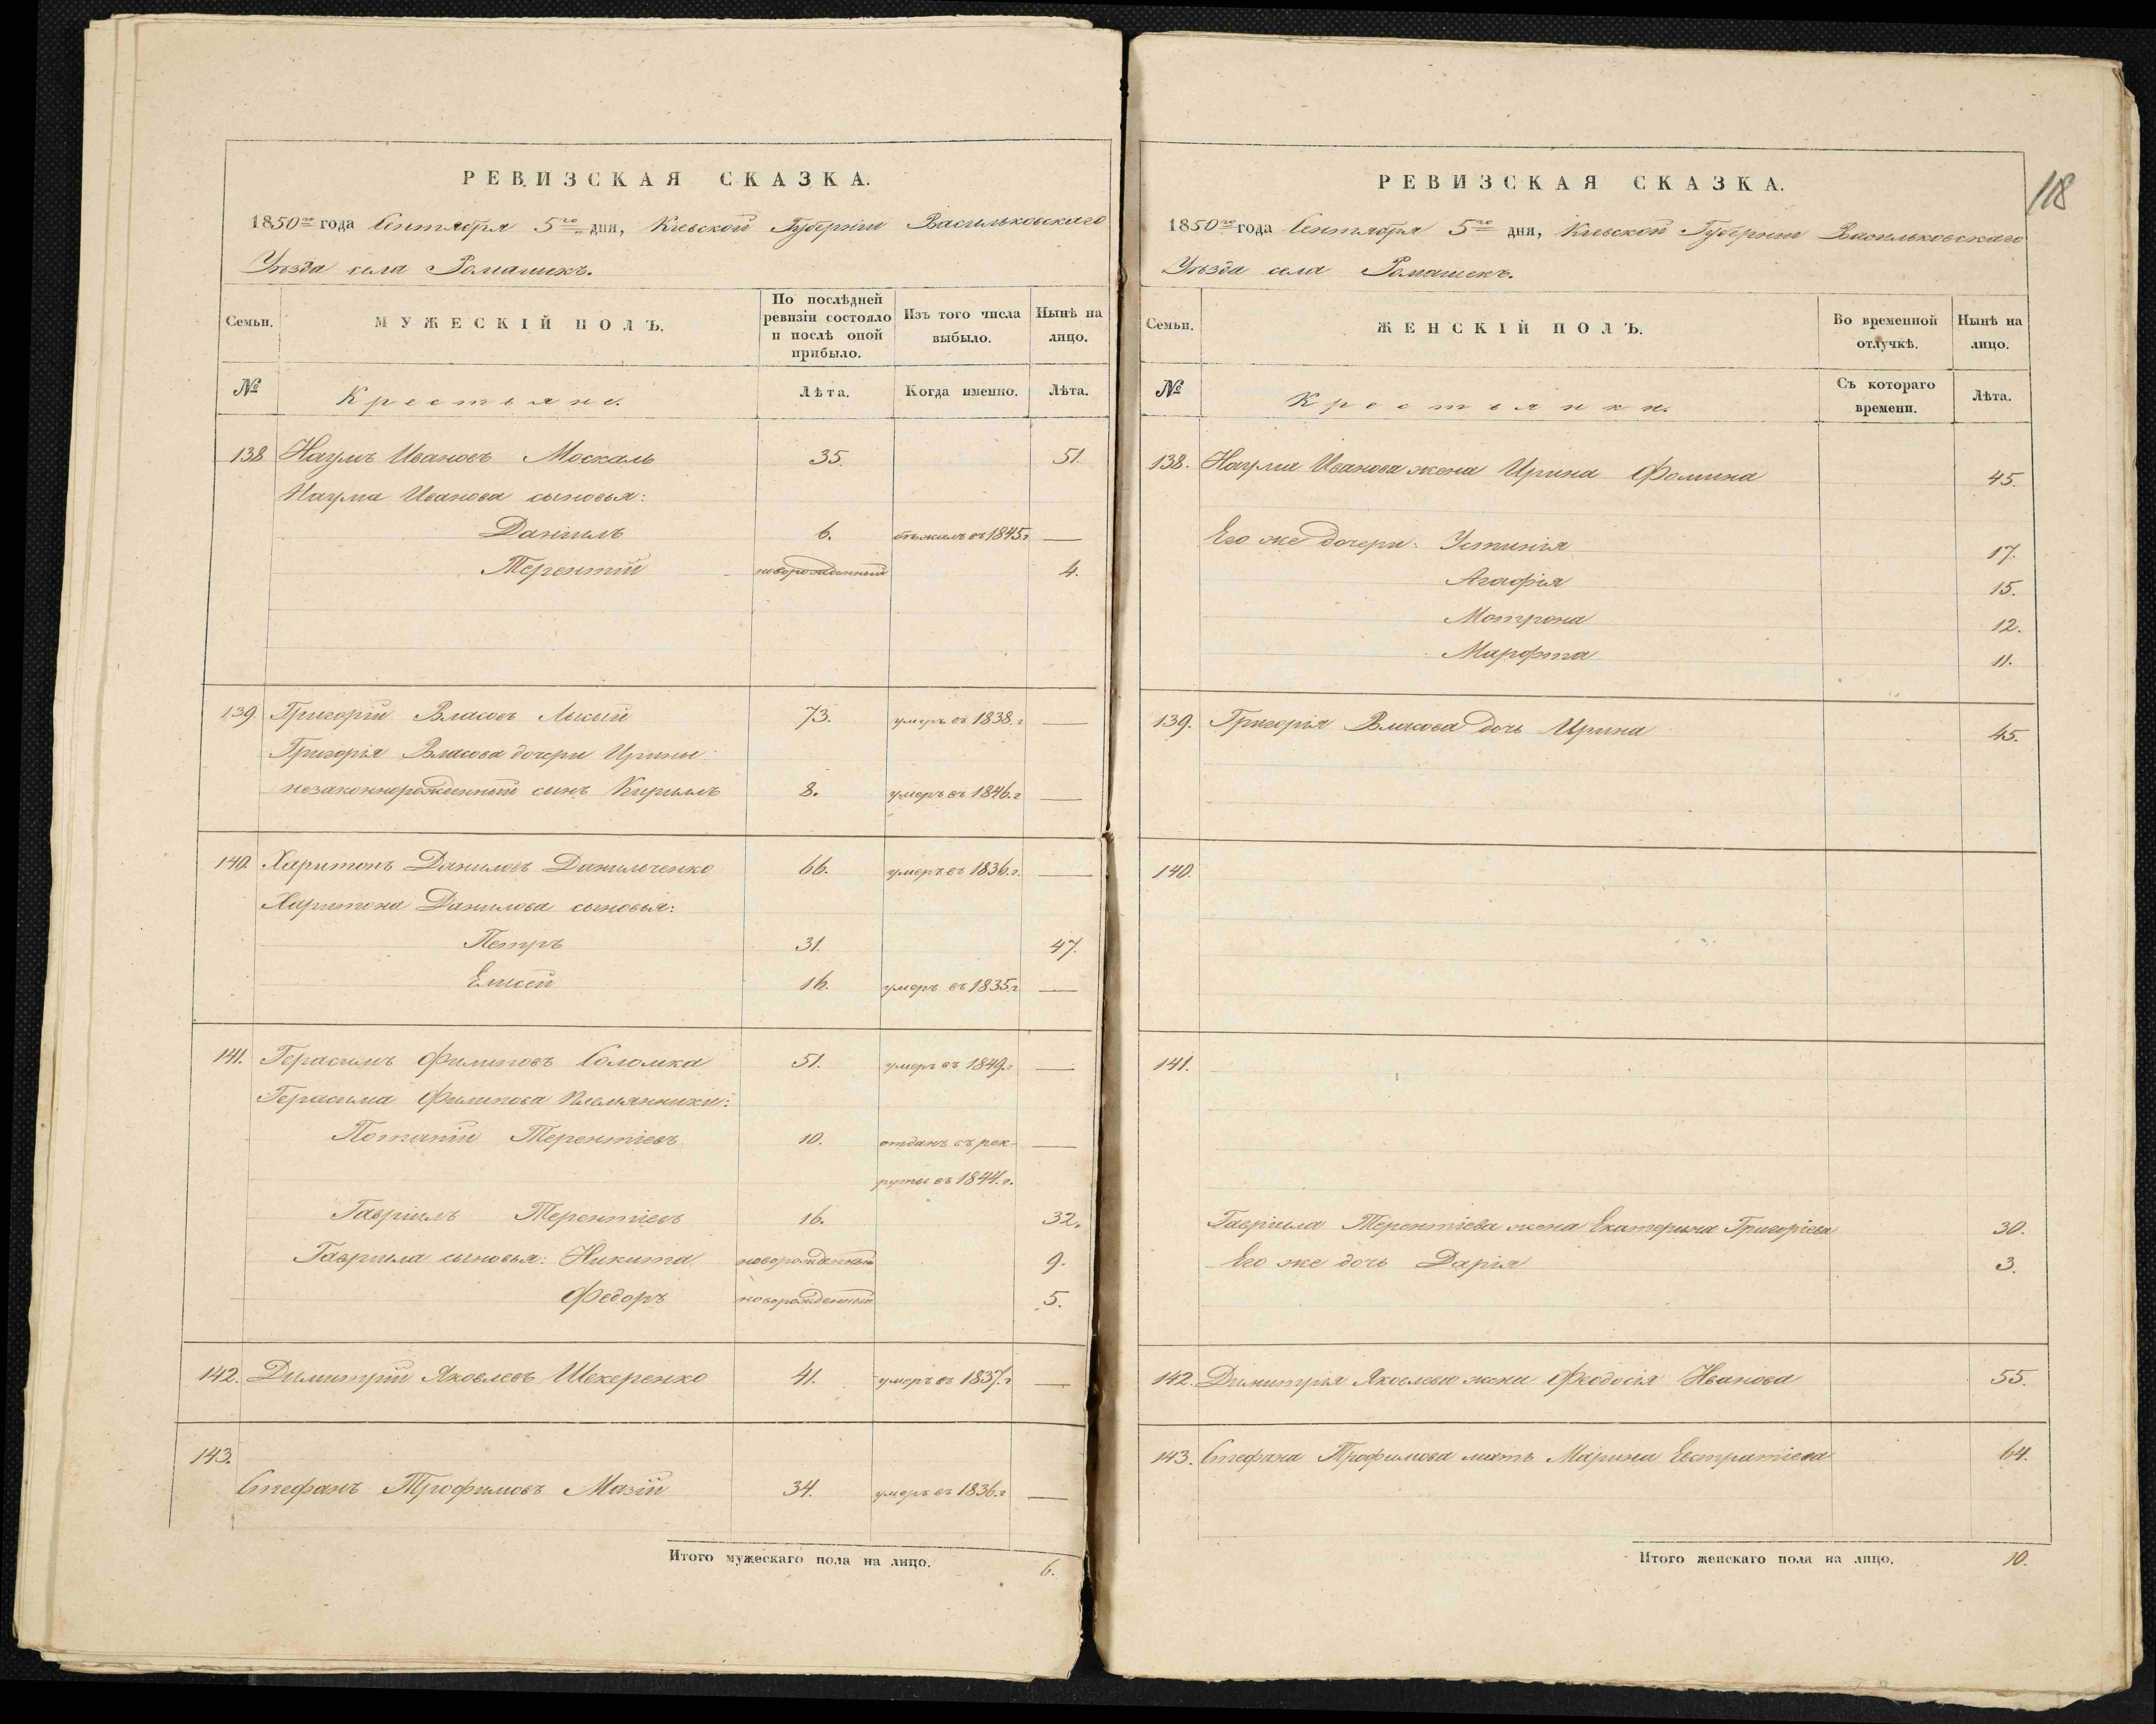 РЕВИЗСКАЯ СКАЗКА.
1850го года Сентября 5го дня, Кіевской Губерніи Васильковскаго
Уѣзда села Ромашикъ.
Семьи.
МУЖЕСКІЙ ПОЛЪ.
По послѣдней ревизіи состояло и послѣ оной прибыло.
Изъ того числа выбыло.
Нынѣ на лицо.
№ Крестьяне. Лѣта. Когда именно. Лѣта.
138 Наумъ Ивановъ Москаль 35. 51.
Наума Иванова сыновья:
Даніилъ 6. бѣжалъ въ 1845г —
Терентій новорожденный 4.
139. Григорій Власовъ Лысый 73. умеръ въ 1838.г —
Григорія Власова дочери Ирины
незаконнорожденный сынъ Кирыллъ 8. умеръ въ 1846.г —
140. Харитонъ Даниловъ Данильченко 66. умеръ въ 1836.г. —
Харитона Данилова сыновья:
Петръ 31. 47.
Елисей 16. умеръ въ 1835.г —
141. Герасимъ Филиповъ Соломка 51. умеръ въ 1849.г —
Герасима Филипова племянники:
Потапій Терентіевъ 10. отданъ въ рек- —
руты въ 1844.г.
Гавріилъ Терентіевъ 16. 32.
Гавріила сыновья: Никита новорожденный 9.
Федоръ новорожденный 5.
142. Димитрій Яковлевъ Шекеренко 41. умеръ въ 1837.г —
143.
Стефанъ Трофимовъ Мазій 34. умеръ въ 1836.г —
Итого мужескаго пола на лицо. 6.
118
РЕВИЗСКАЯ СКАЗКА.
1850го года Сентября 5го дня, Кіевской Губерніи Васильковскаго
Уѣзда села Ромашекъ.
Семьи.
ЖЕНСКІЙ ПОЛЪ.
Во временной отлучкѣ.
Нынѣ на лицо.
№ Крестьянки. Съ котораго времени. Лѣта.
138. Наума Иванова жена Ирина Фомина 45.
Его же дочери: Устинія 17.
Агафія 15.
Мотрона 12.
Марфта 11.
139. Григорія Власова дочь Ирина 45.
140.
141.
Гавріила Терентіева жена Екатерина Григоріева 30.
Его же дочь Дарія 3.
142. Димитрія Яковлева жена Феодосія Иванова 55.
143. Стефана Трофимова мать Марина Евстратіева 64.
Итого женскаго пола на лицо. 10.